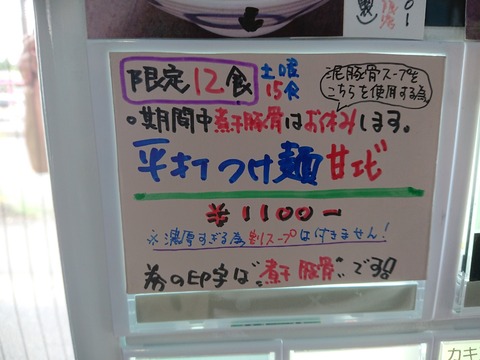 限定12食
土日祝
15食
泥豚骨スープを
こちらを使用する為
○期間中煮干豚骨はお休みします。
平打つけ麺甘エビ
¥1100ー
※濃厚すぎる為割スープは付きません!
券の印字は"煮干豚骨"です!!
カキ